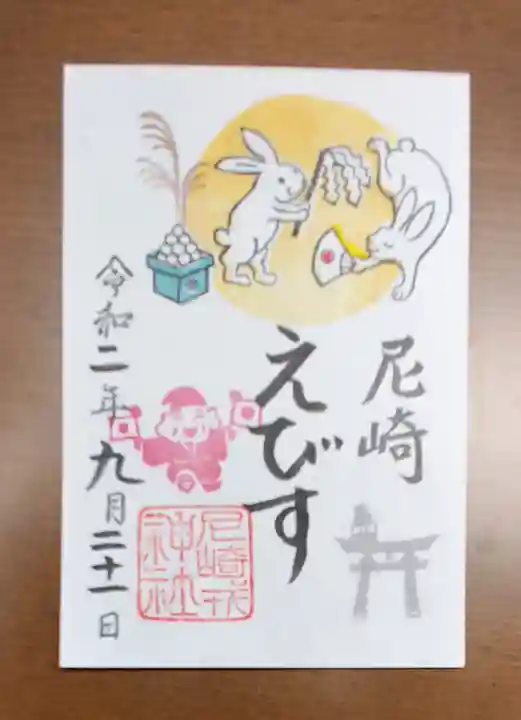 尼崎
えびす
令和二年九月二十一日
尼崎戎
神社